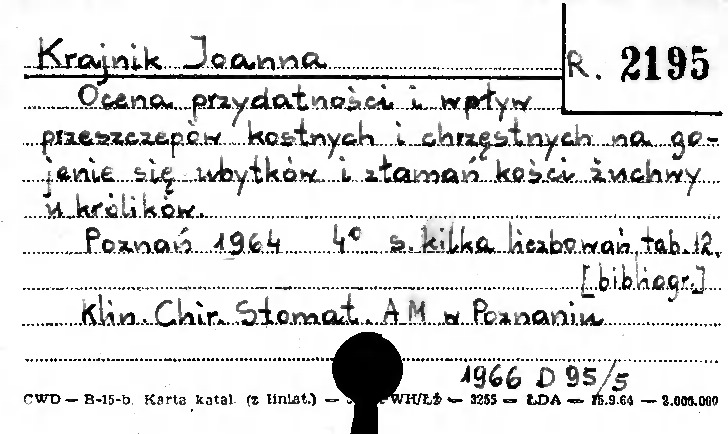 Krajnik Joanna
R. 2195
Ocena przydatności i wpływ
przeszczepów kostnych i chrzęstnych na go-
jenie się ubytków i złamań kości żuchwy
u królików.
Poznań 1964 4° s. kilka liczbowań, tab. 12,
[bibliogr.]
Klin. Chir. Stomat. AM w Poznaniu
1966 D 95/5
CWD — B-15-b. Karta katal. (z liniat.) — WH/ŁD — 3255 — ŁDA — 15.9.64 — 2.000.000